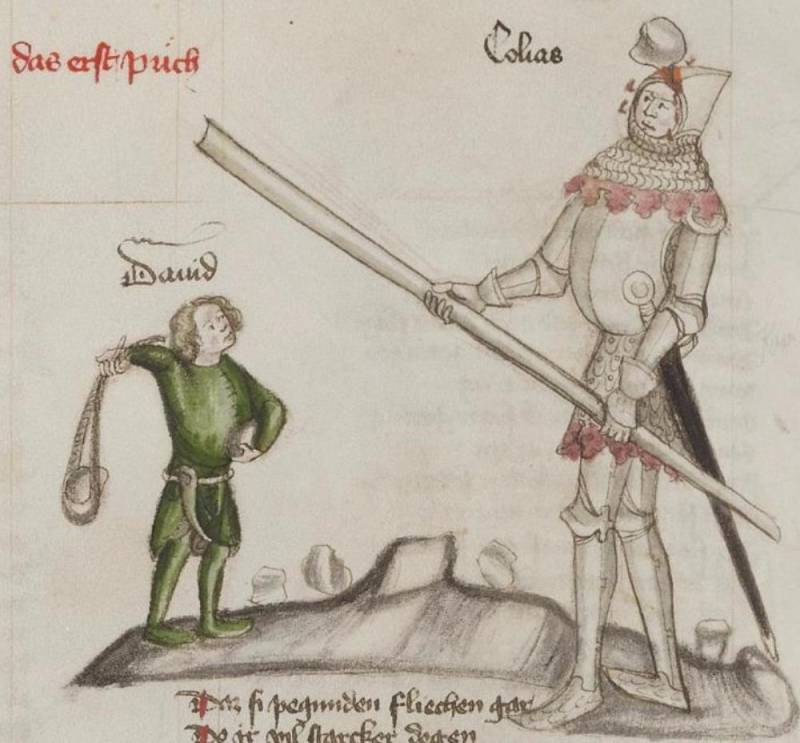 das erst puch
Golias
Dauid
Daz si pegunden fliechen gar
Do ir vil starcker degen